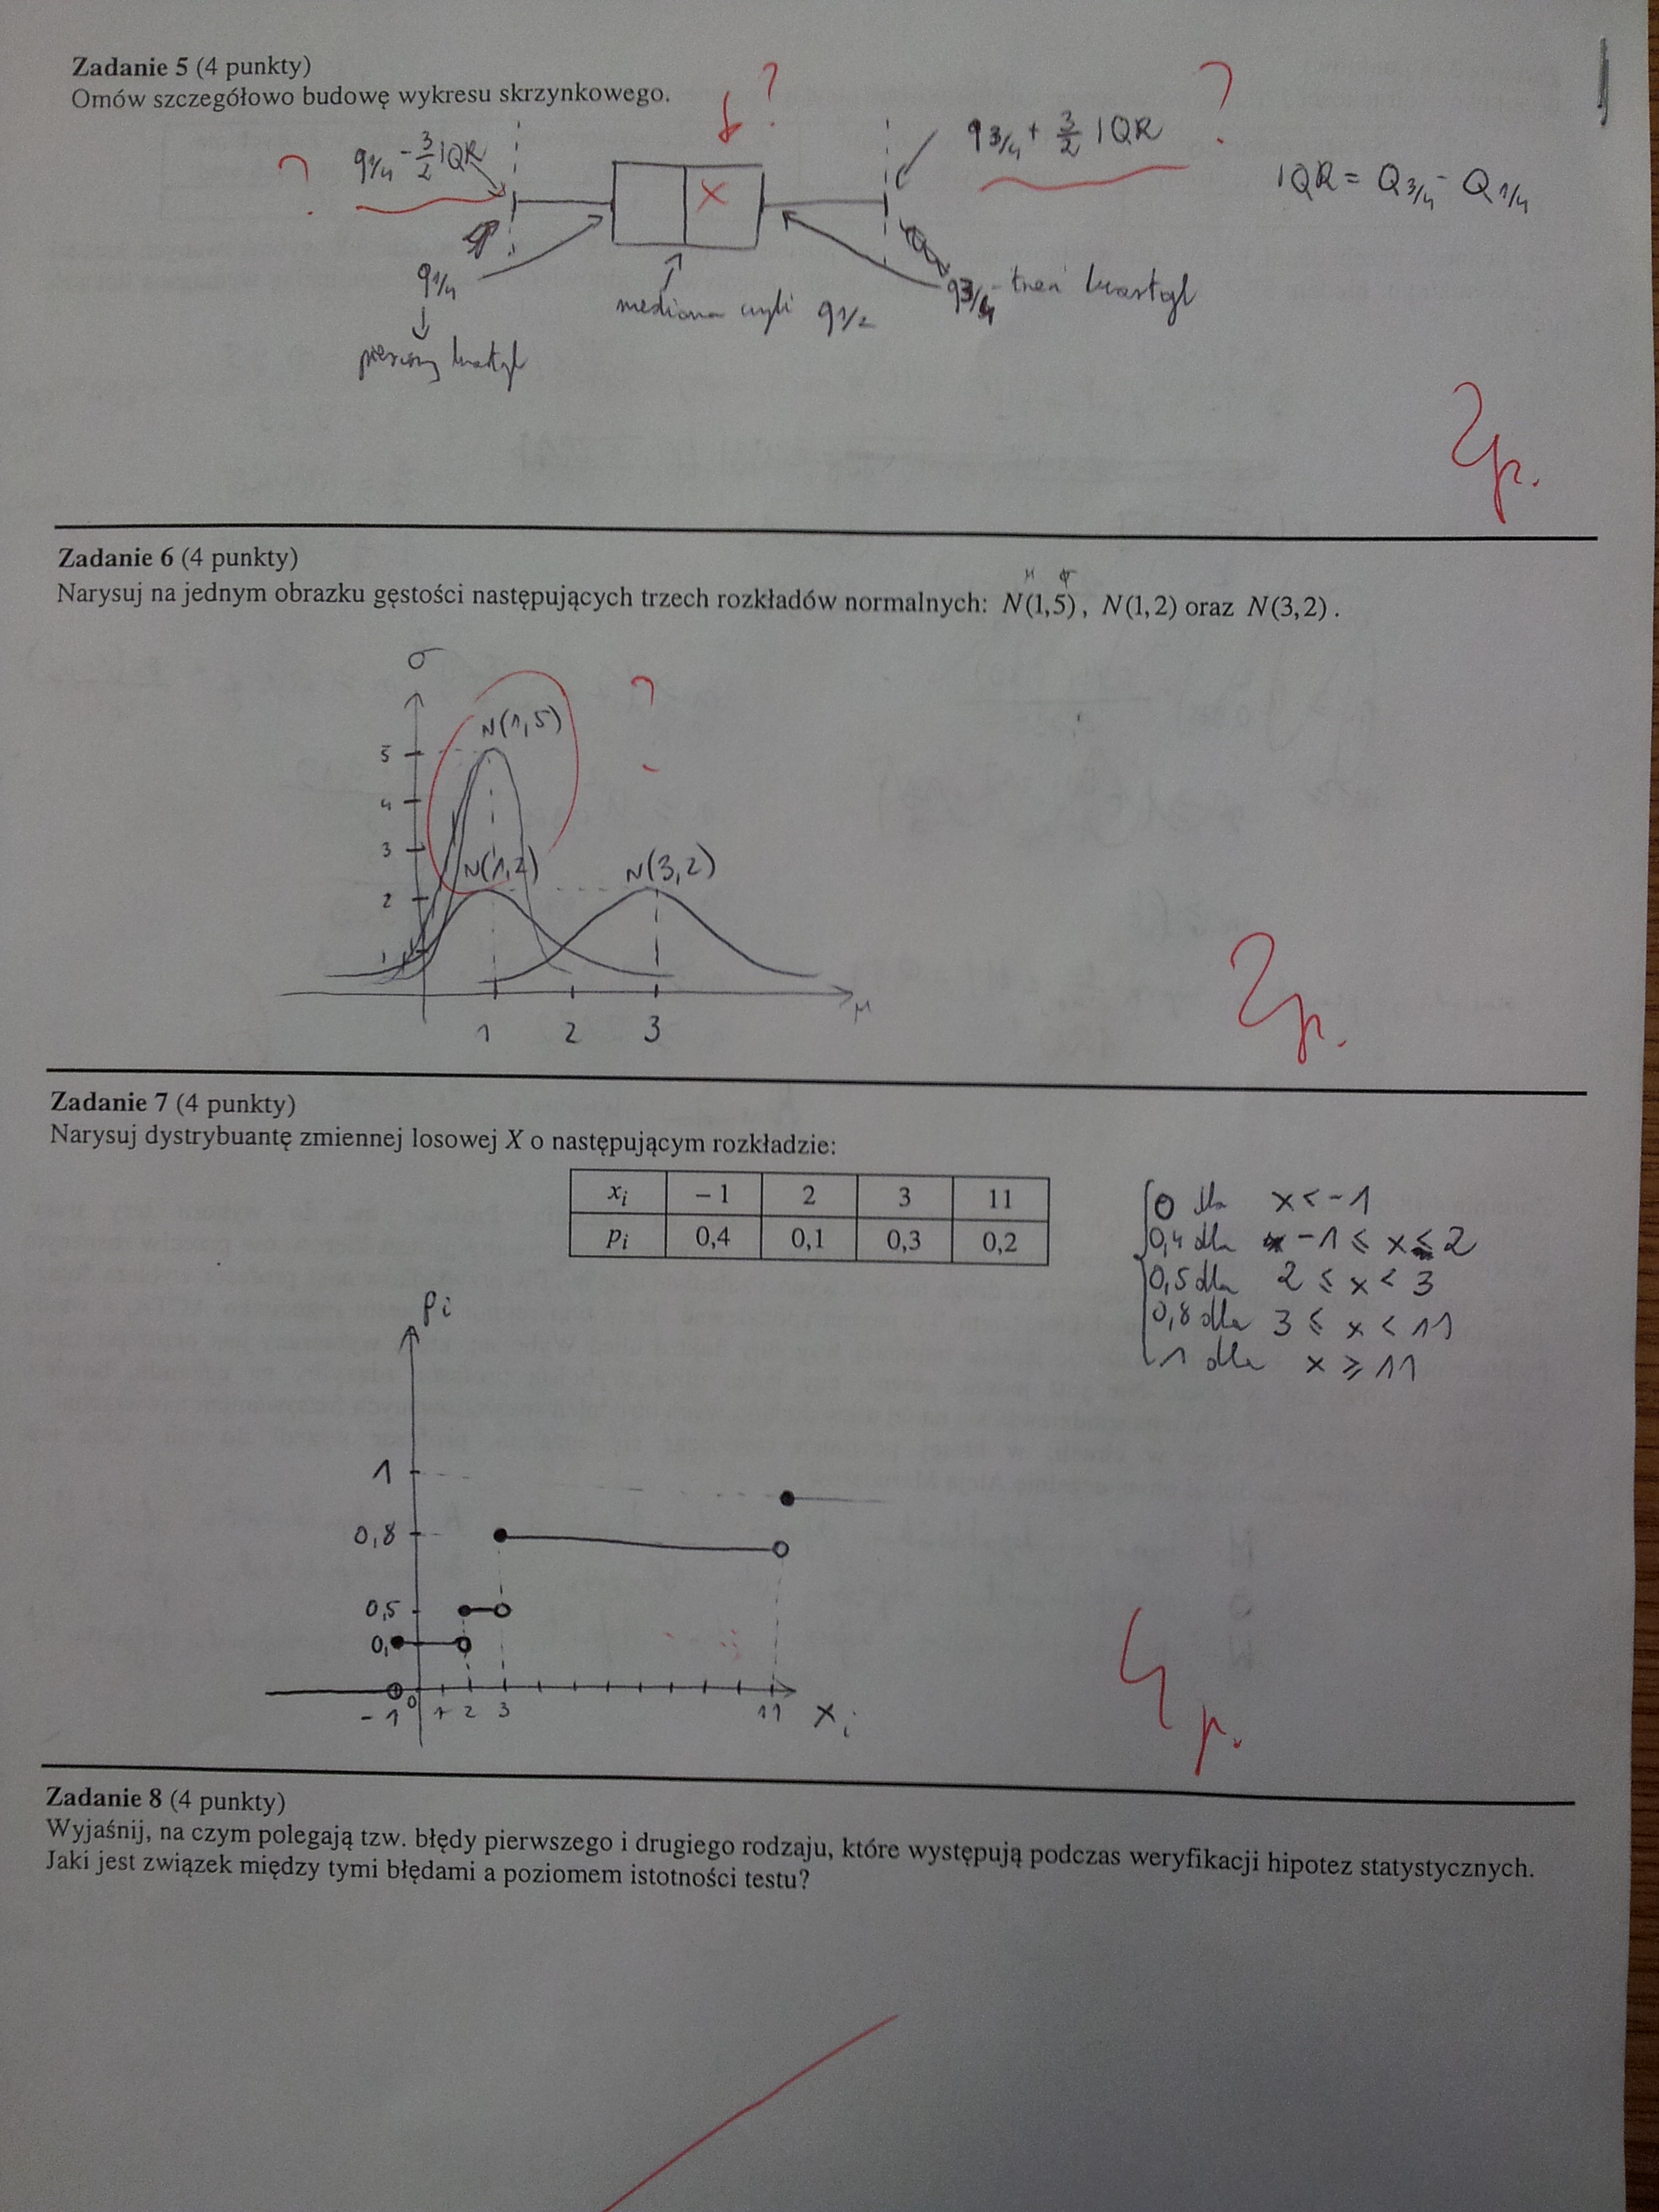 Zadanie 5 (4 punkty)
Omów szczegółowo budowę wykresu skrzynkowego.
?
?
?
q1/4 - 3/2 IQR
x
q3/4 + 3/2 IQR
IQR = Q3/4 - Q1/4
q1/4
pierwszy kwartyl
mediana czyli q1/2
q3/4 - trzeci kwartyl
2p.
Zadanie 6 (4 punkty)
μ σ
Narysuj na jednym obrazku gęstości następujących trzech rozkładów normalnych: N(1,5), N(1,2) oraz N(3,2).
σ
?
N(1,5)
5
4
3
N(1,2)
N(3,2)
2
1
μ
1 2 3
2p.
Zadanie 7 (4 punkty)
Narysuj dystrybuantę zmiennej losowej X o następującym rozkładzie:
xi -1 2 3 11
pi 0,4 0,1 0,3 0,2
0 dla x < -1
0,4 dla -1 ≤ x < 2
0,5 dla 2 ≤ x < 3
0,8 dla 3 ≤ x < 11
1 dla x ≥ 11
Pi
1
0,8
0,5
0,
-1 0 1 2 3 11 Xi
4p.
Zadanie 8 (4 punkty)
Wyjaśnij, na czym polegają tzw. błędy pierwszego i drugiego rodzaju, które występują podczas weryfikacji hipotez statystycznych.
Jaki jest związek między tymi błędami a poziomem istotności testu?